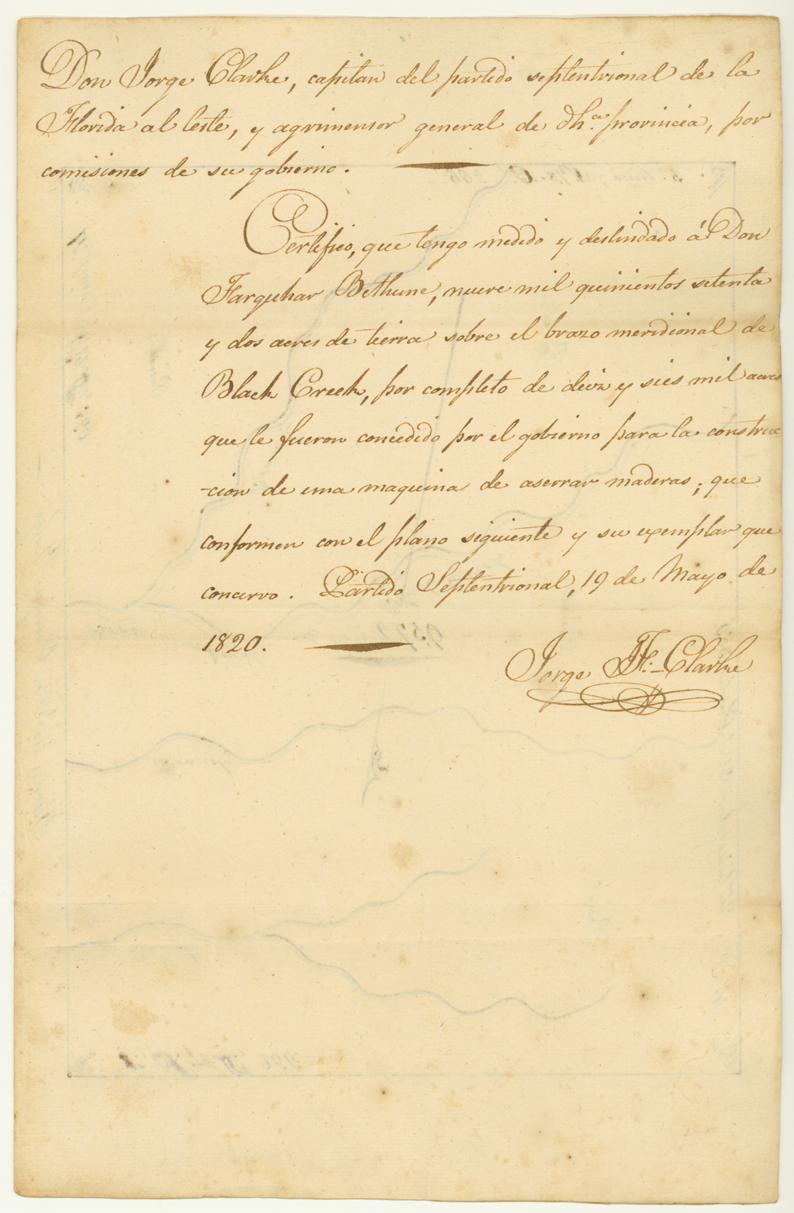 Don Jorge Clarke, capitan del partido septentrional de la
Florida al leste, y agrimensor general de dh.ca provincia, por
comisiones de su gobierno.
Certifico, que tengo medido y deslindado á Don
Farquhar Bethune, nueve mil quinientos setenta
y dos acres de tierra sobre el brazo meridional de
Black Creek, por completo de deiz y seis mil acres
que le fueron concedido por el gobierno para la construc
-cion de una maquina de aserrar maderas; que
conformen con el plano siguiente y su exemplar que
concervo. Partido Septentrional, 19 de Mayo de
1820.
Jorge J. F. Clarke